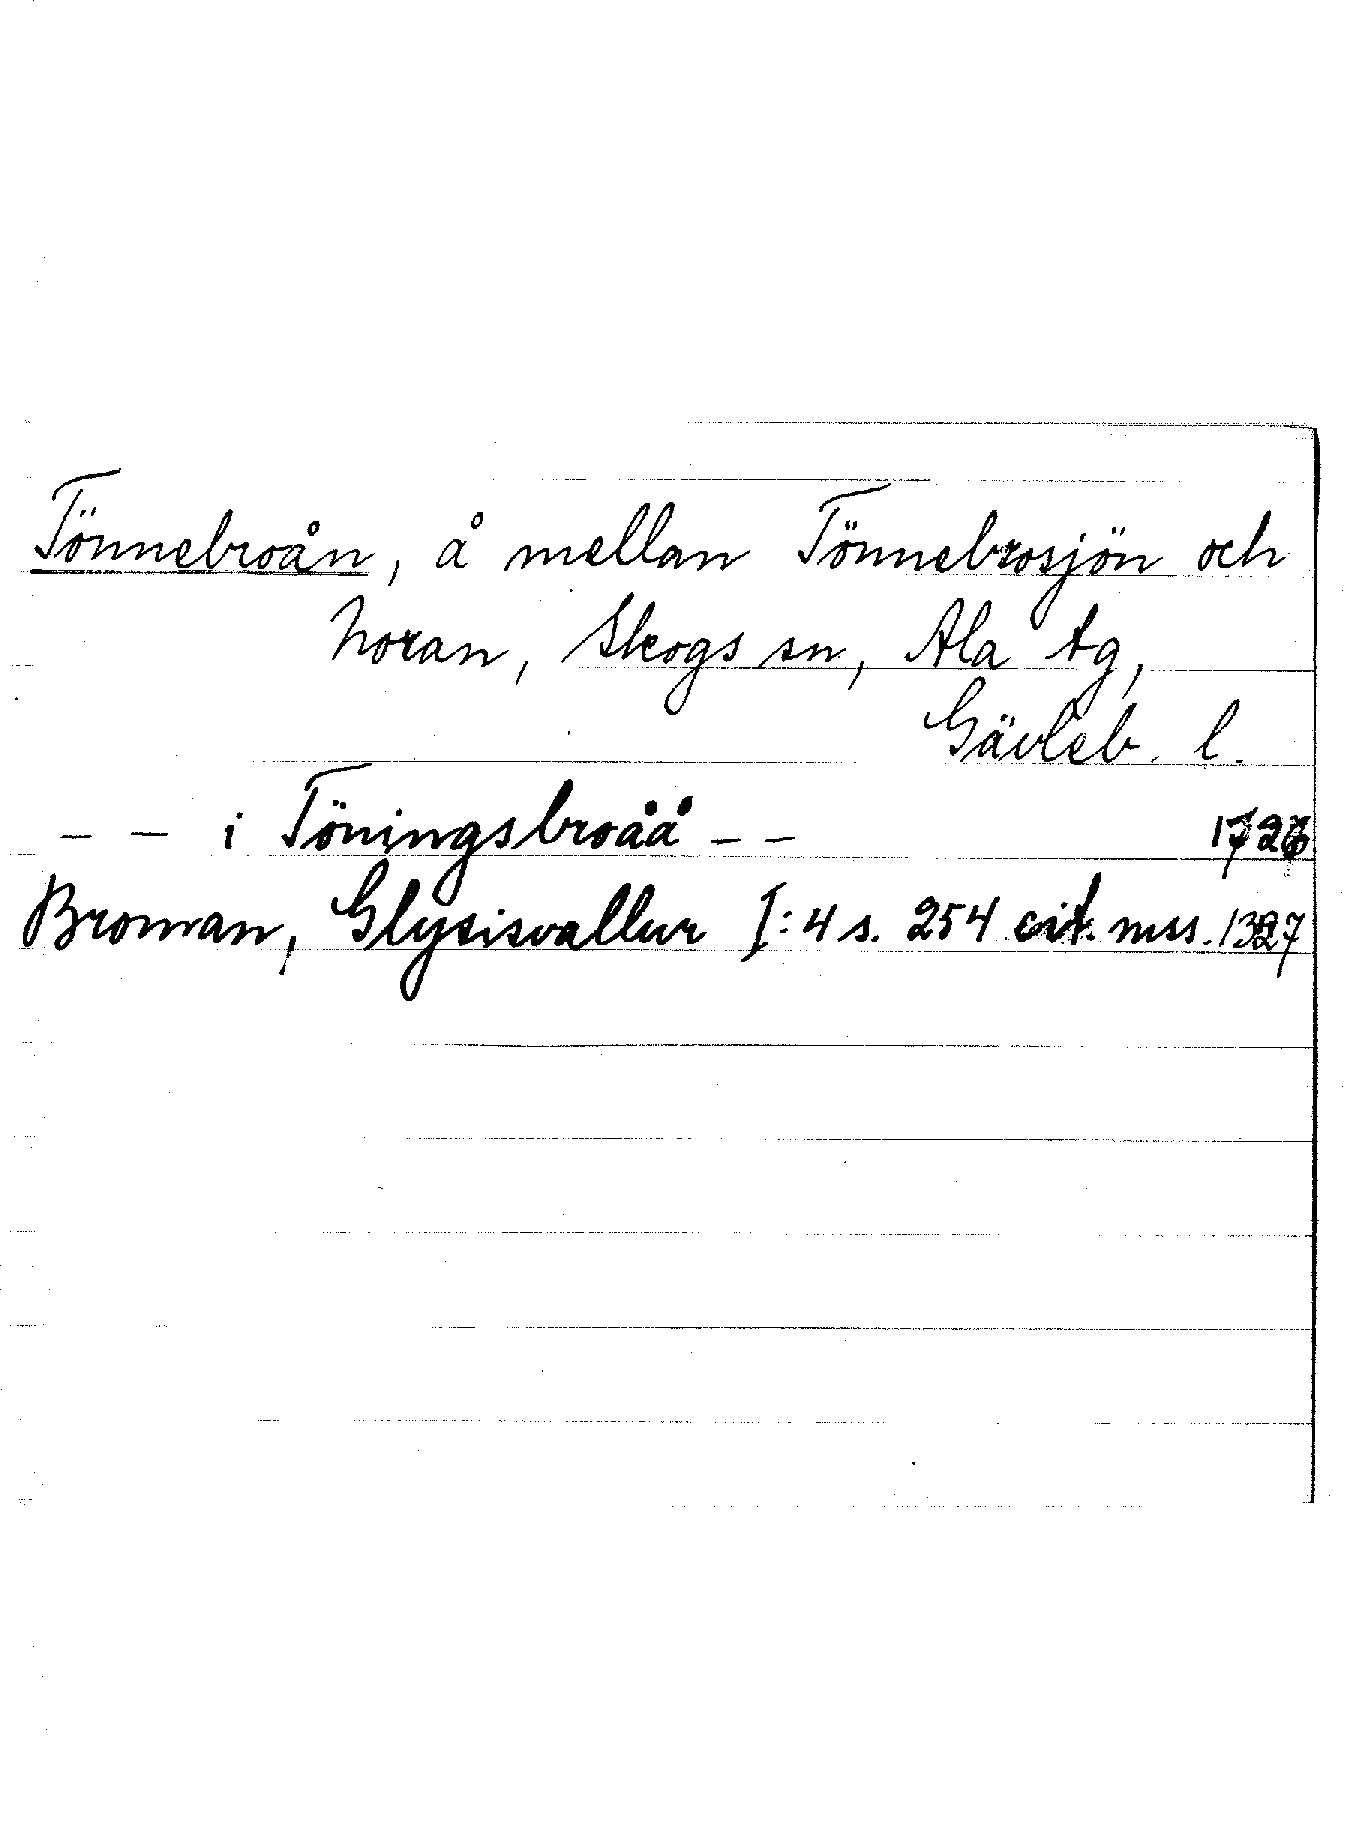 Tönnebroån, å mellan Tönnebrosjön och
Noran, Skogs sn, Ala tg,
Gävleb. l.
– – i Töningsbroåå – –
Broman, Glysisvallur I:4 s. 254 cit. mss. 1327